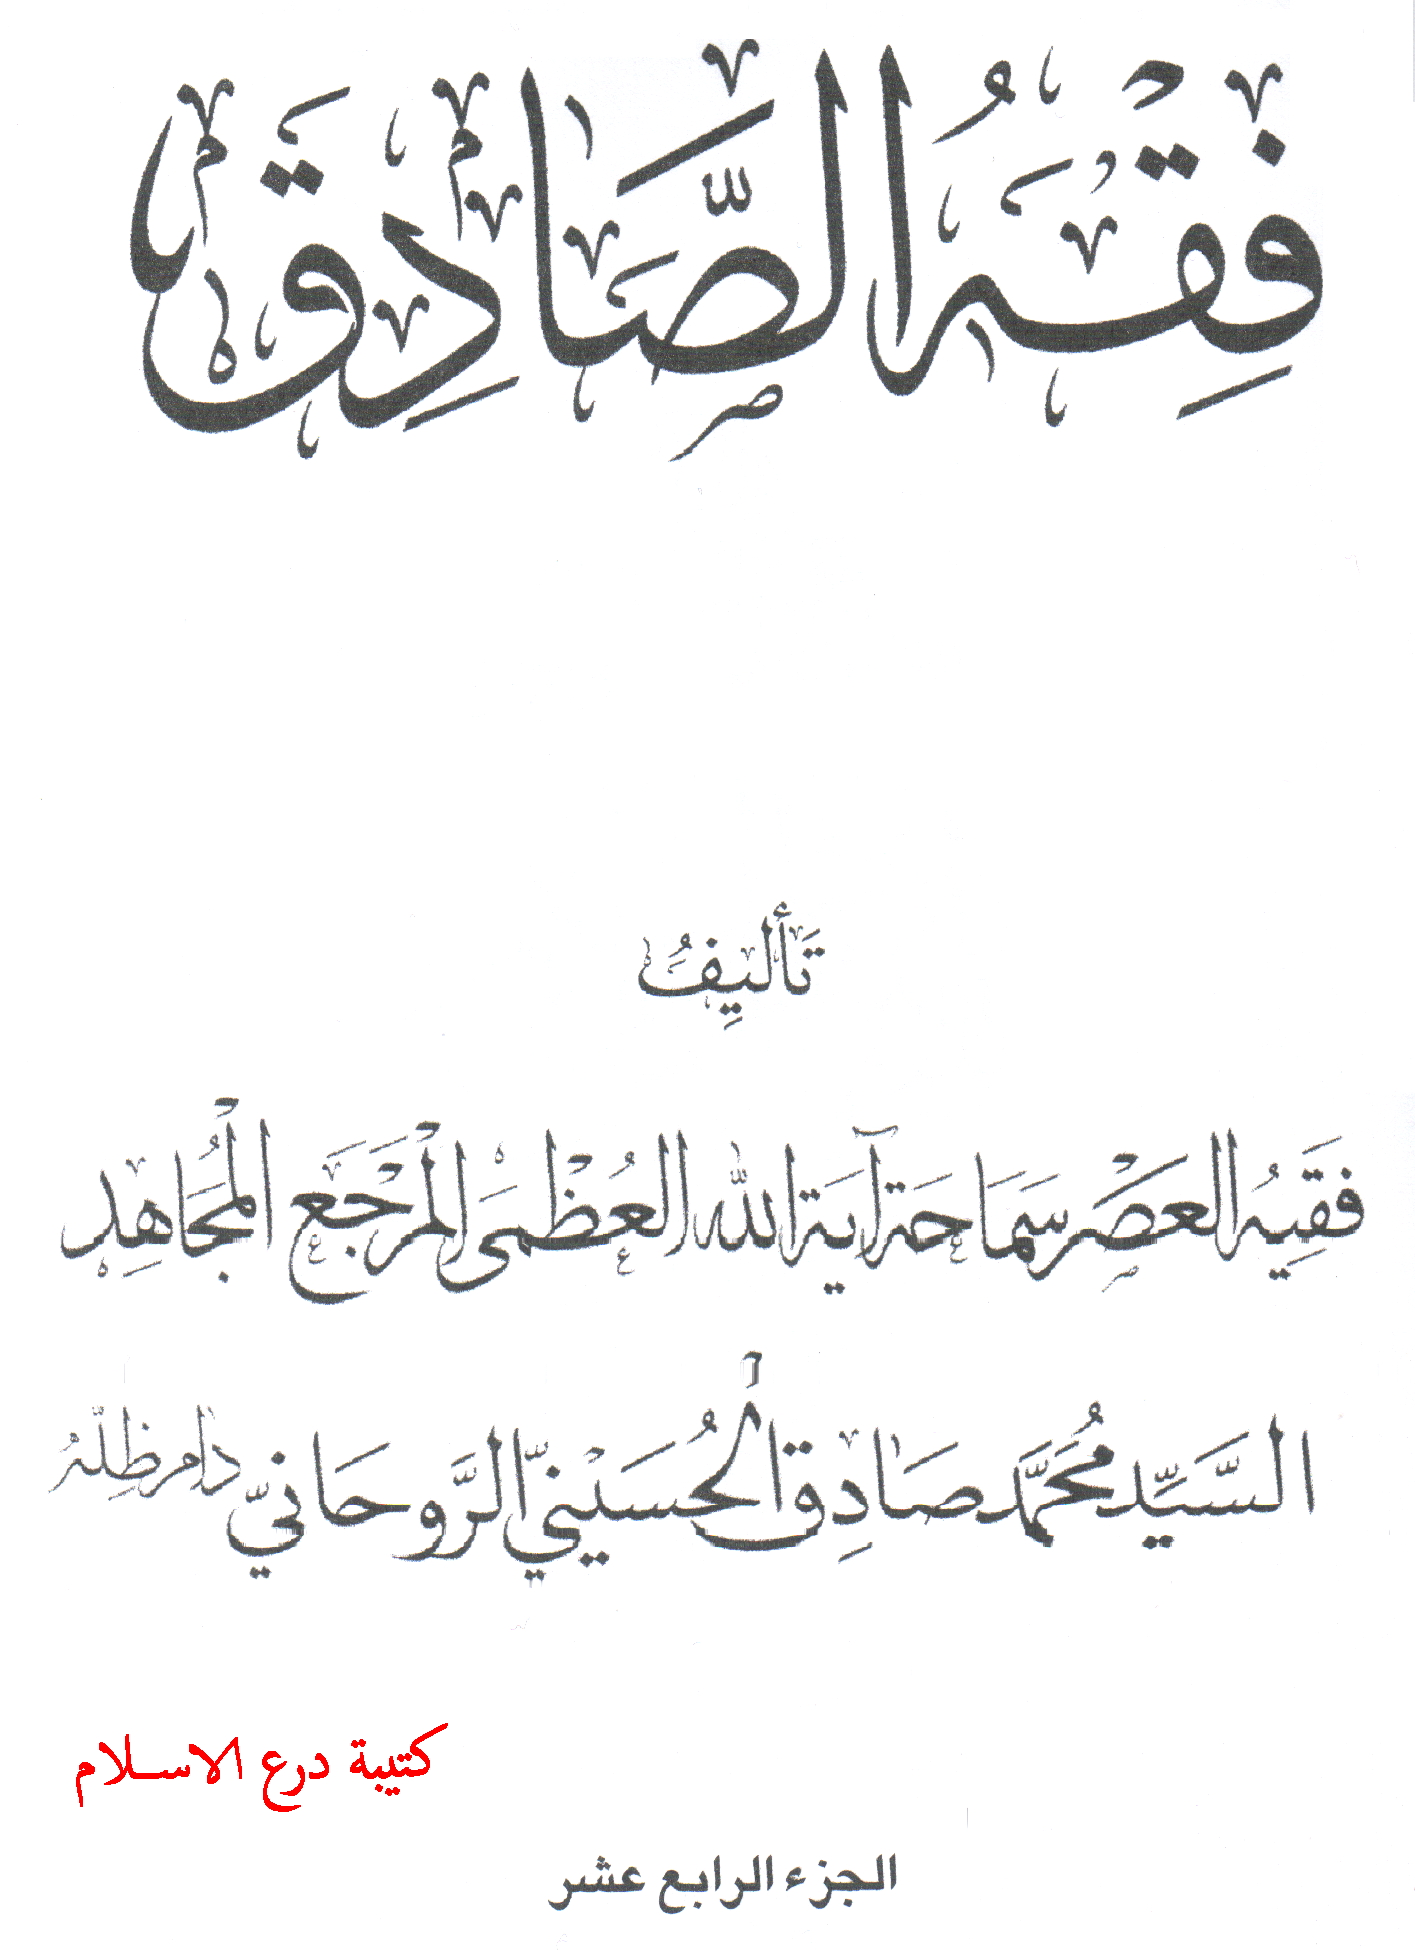 فِقْهُ الصَّادِق
تَأليفُ
فَقِيهُ العَصْر سَمَاحَة آيَة الله العُظْمَى المَرْجَع المُجَاهِد
السَّيِّد مُحَمَّد صَادِق الحُسَيْنِيّ الرَّوحَانِيّ دَام ظِلّهُ
كتيبة درع الاسلام
الجزء الرابع عشر